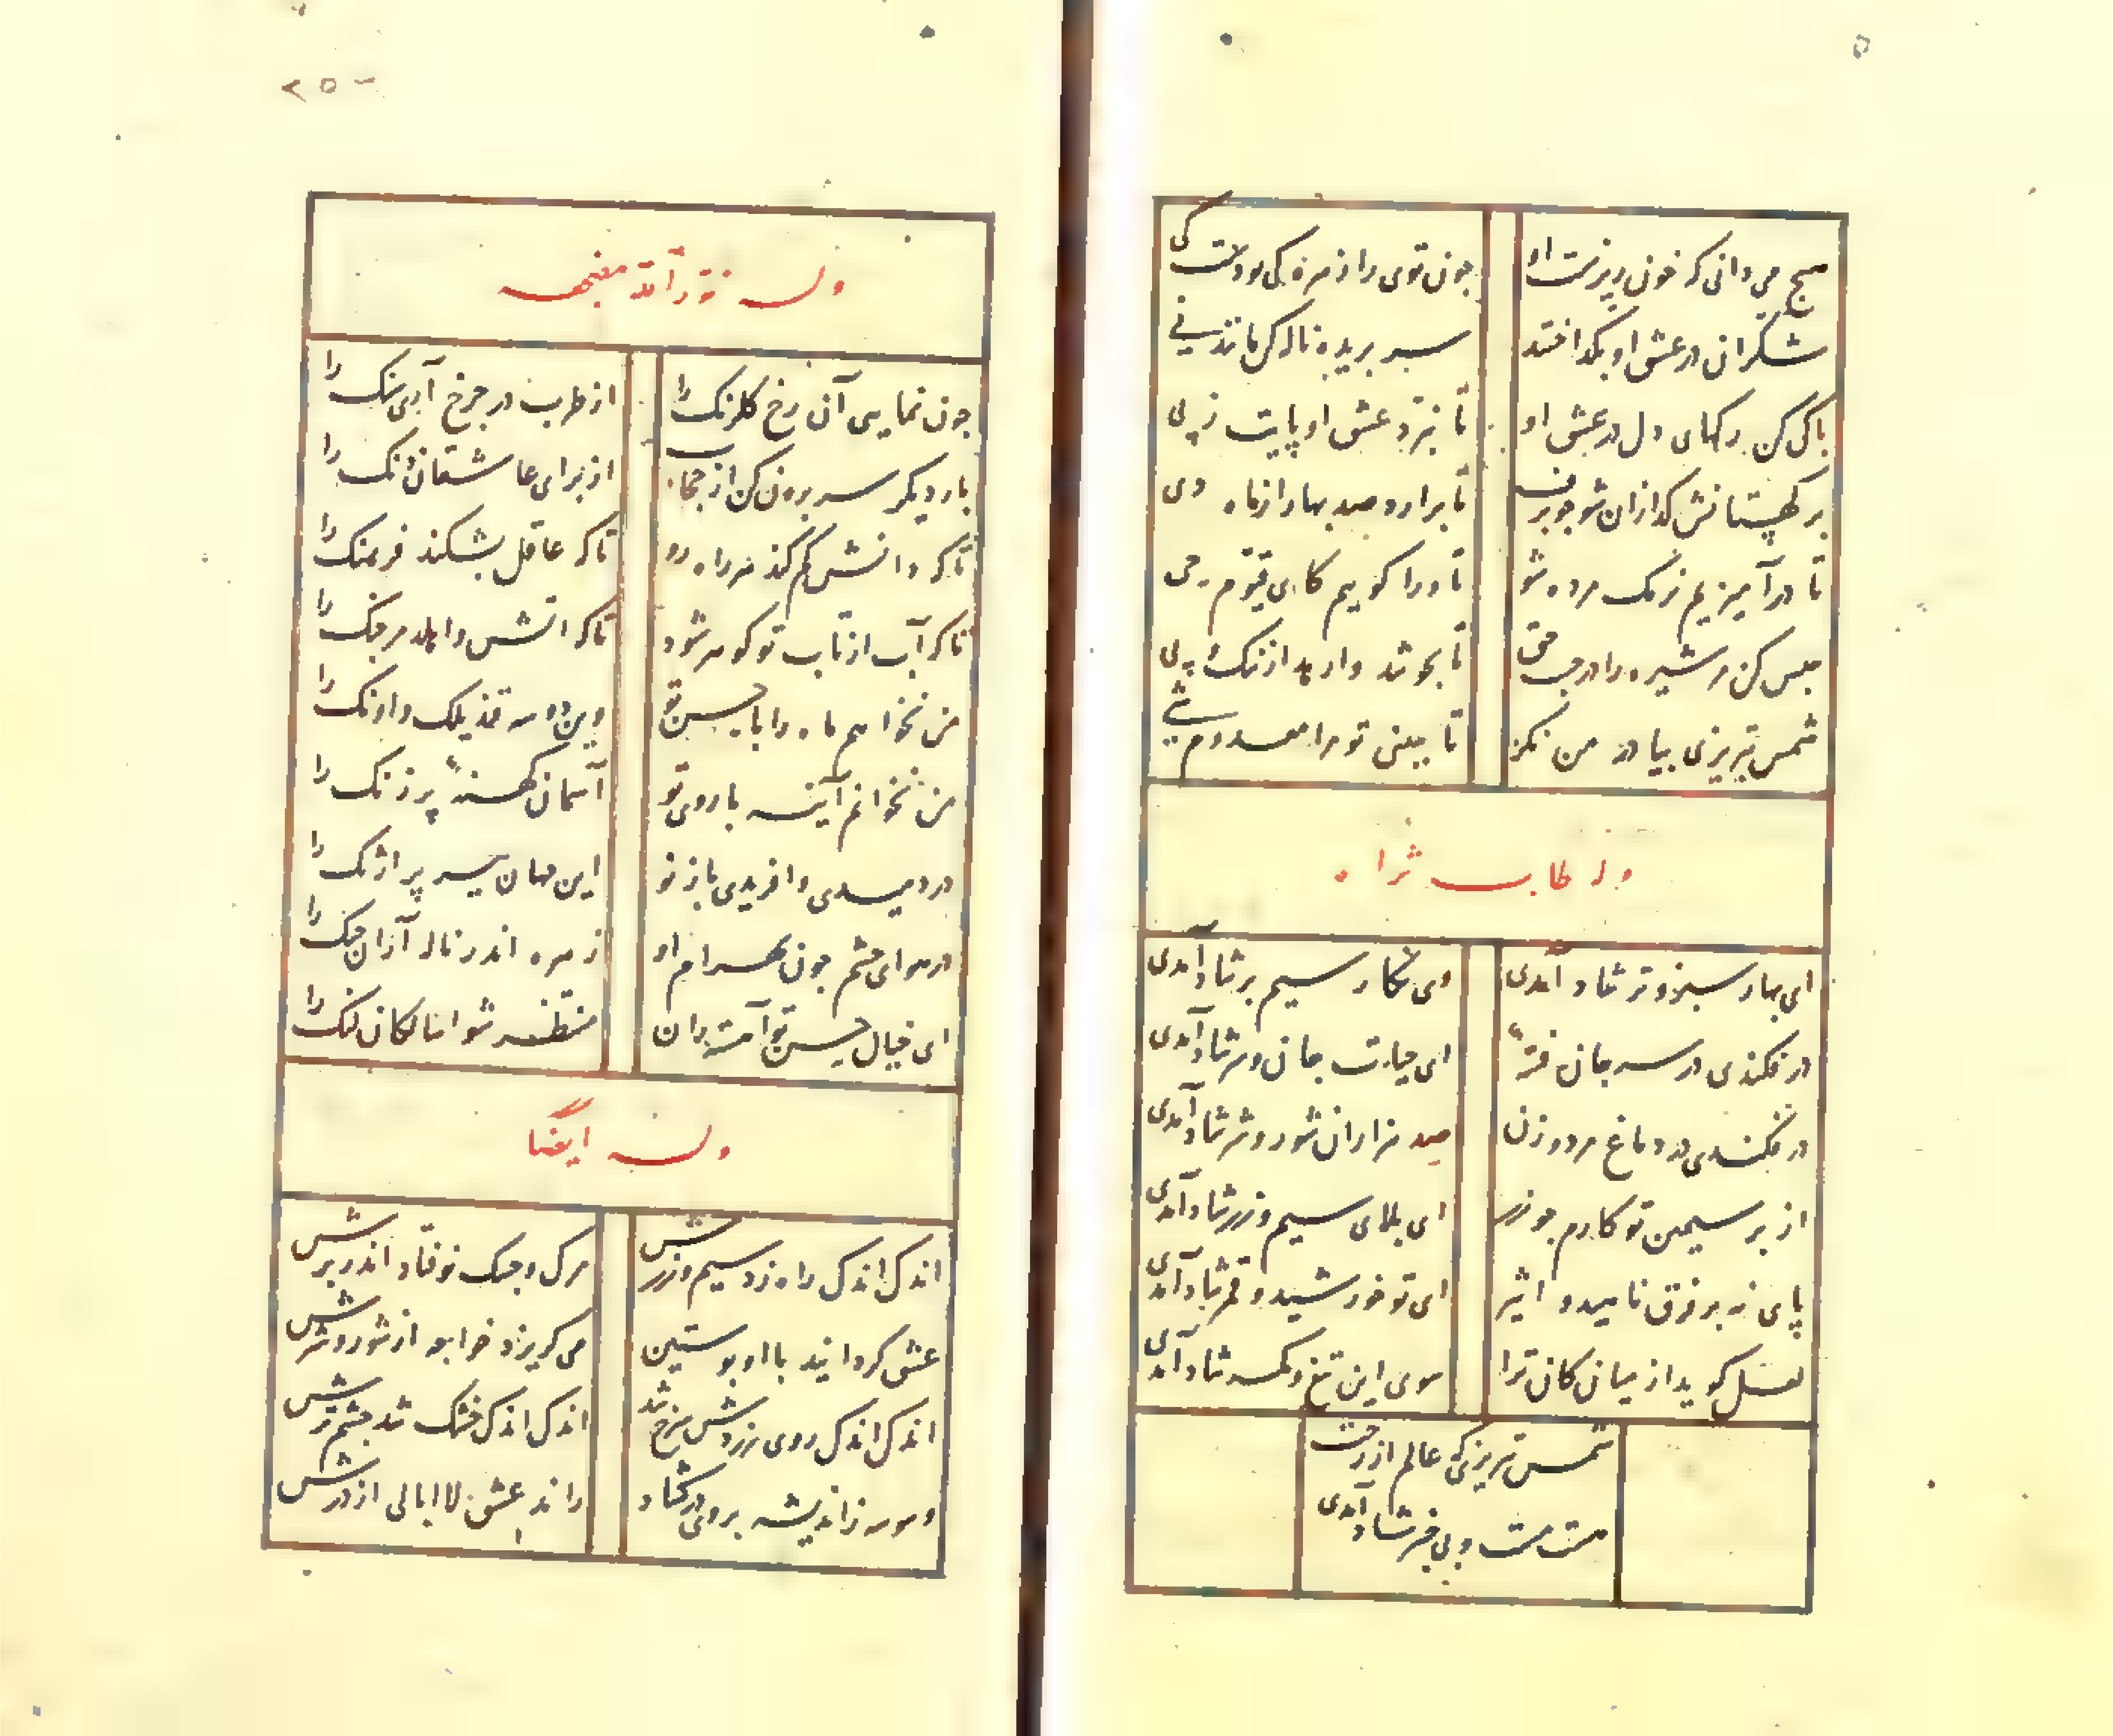 هیچ می دانی که خون ریزست او
چون توی را زهره کی بودست کی
شکران در عشق او بگداختند
سر بریده ناله کن مانند نی
پاک کن رگهای دل در عشق او
تا نبرد عشق او پایت ز پی
بر گهستانش گدازان شو چو برف
تا برارد صد بهار از ماه دی
تا درآمیزیم زنگ مرده شو
تا ورا گوییم کای قیوم حی
حبس کن مر شیره را در خنب حق
تا بجوشد وارهد از ننگ پی
شمس تبریزی بیا در من نگر
تا ببینی تو مرا معدوم شی
وله طاب ثراه
ای بهار سبز و تر شاد آمدی
وی نگار سیم بر شاد آمدی
در فکندی در سر جان فتنهٔ
ای حیات جان و سر شاد آمدی
در فکندی در دماغ مرد و زن
صد هزاران شور و شر شاد آمدی
از بر سیمین تو کارم چو زر
ای بلای سیم و زر شاد آمدی
پای نه بر فرق ناهید و اثیر
ای تو خورشید و قمر شاد آمدی
لعل گوید از میان کان ترا
سوی این تیغ و کمر شاد آمدی
شمس تبریزی که عالم از رخت
مست مست و بی خبر شاد آمدی
۲۵
وله نور الله مضجعه
چون نمایی آن رخ کلرنک را
از طرب در چرخ آری سنک را
بار دیکر سر برون کن از حجاب
از برای عاشقان دنک را
تا که دانش کم کند مر راه رو
تا که عاقل بشکند فرهنک را
تا که آب از تاب تو کوهر شود
تا که اتش واهلد مر جنک را
من نخواهم ماه را با حسن تو
وین دو سه قندیلک واونک را
من نخوانم آینه با روی تو
آسمان کهنهٔ پر زنک را
در دمیدی وافریدی باز تو
این جهان سیه پر ازنک را
در هوای چشم چون بهرام او
زهره اندر ناله آر آن چنک را
ای خیال حسن تو آهسته ران
منتظر شو انمالکان لنک را
وله ایضا
اندک اندک راه زد سیم و زرش
مرک و جسک نو فتاد اندر برش
عشق کردانید با او پوستین
می کریزد خواجه از شور و شرش
اندک اندک روی زردش سرخ شد
اندک اندک خشک شد چشم ترش
وسوسه زاندیشه بر وی درکشاد
راند عشق لاابالی از درش